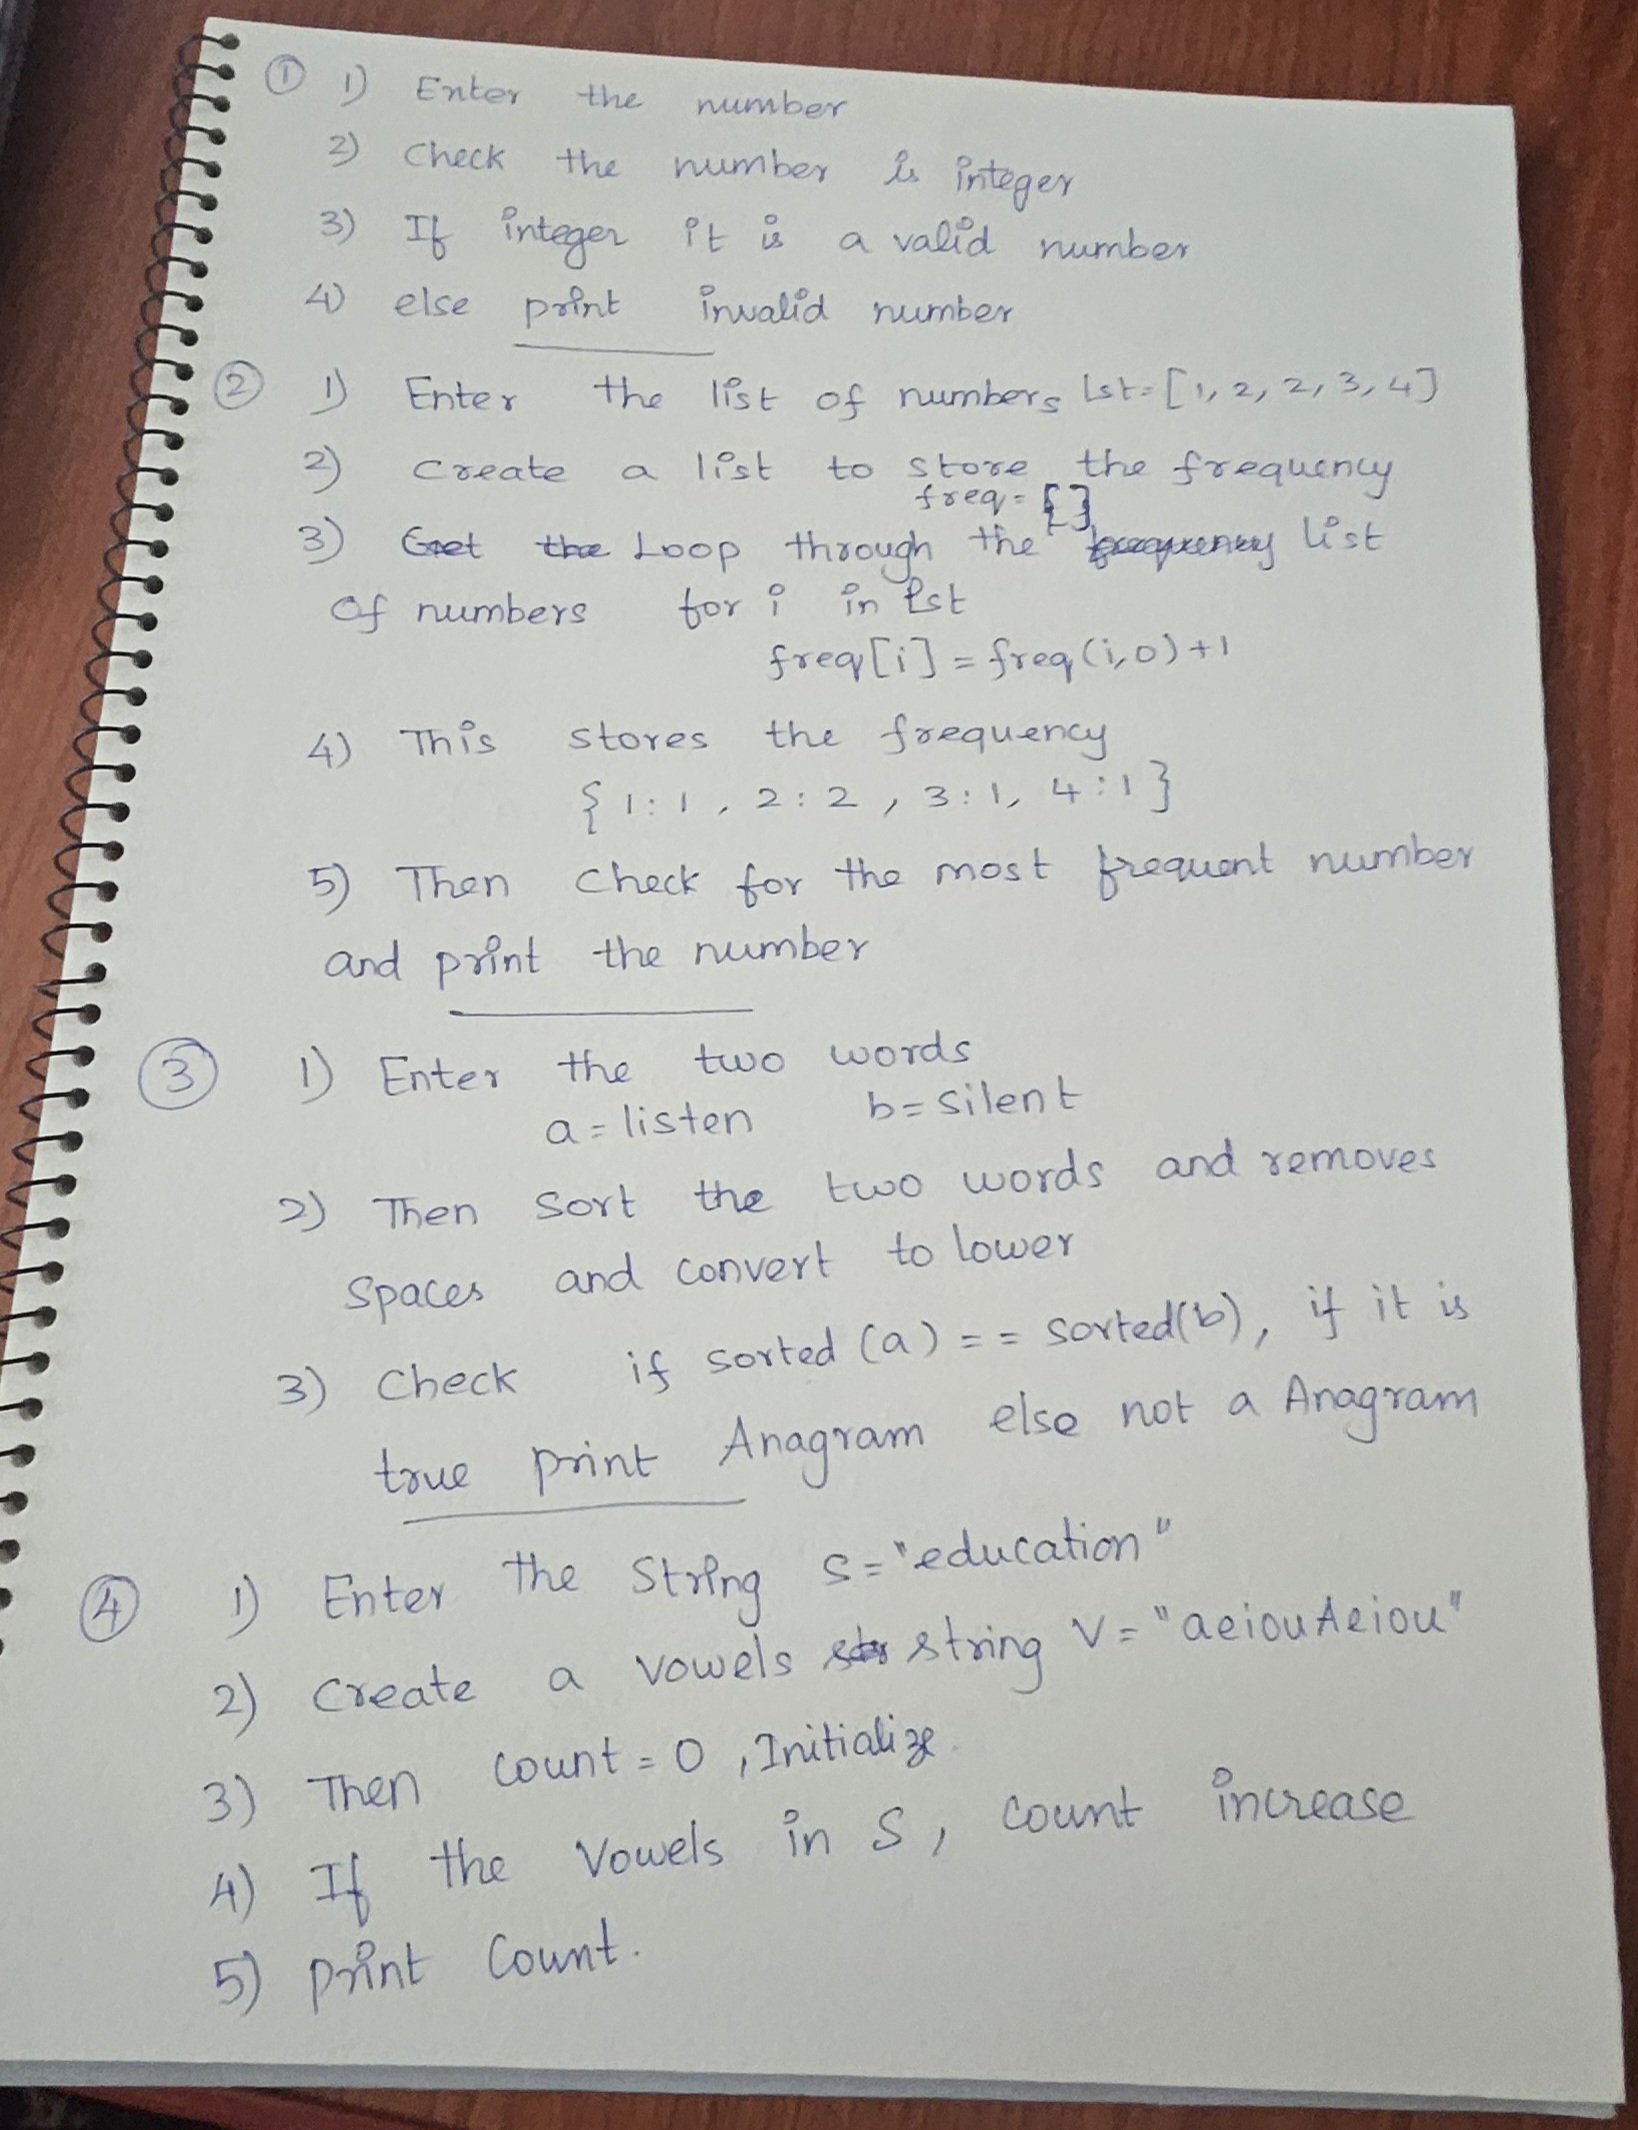 ① 1) Enter the number
2) Check the number is integer
3) If integer it is a valid number
4) else print invalid number
② 1) Enter the list of numbers lst=[1, 2, 2, 3, 4]
2) Create a list to store the frequency
freq = {}
3) Get the Loop through the frequency list
of numbers for i in lst
freq[i] = freq(i,0)+1
4) This stores the frequency
{1:1, 2:2, 3:1, 4:1}
5) Then check for the most frequent number
and print the number
③ 1) Enter the two words
a = listen b = silent
2) Then sort the two words and removes
spaces and convert to lower
3) Check if sorted (a) == sorted(b), if it is
true print Anagram else not a Anagram
④ 1) Enter the string S="education"
2) Create a vowels str string V = "aeiouAeiou"
3) Then count = 0, Initialize.
4) If the vowels in S, count increase
5) print Count.